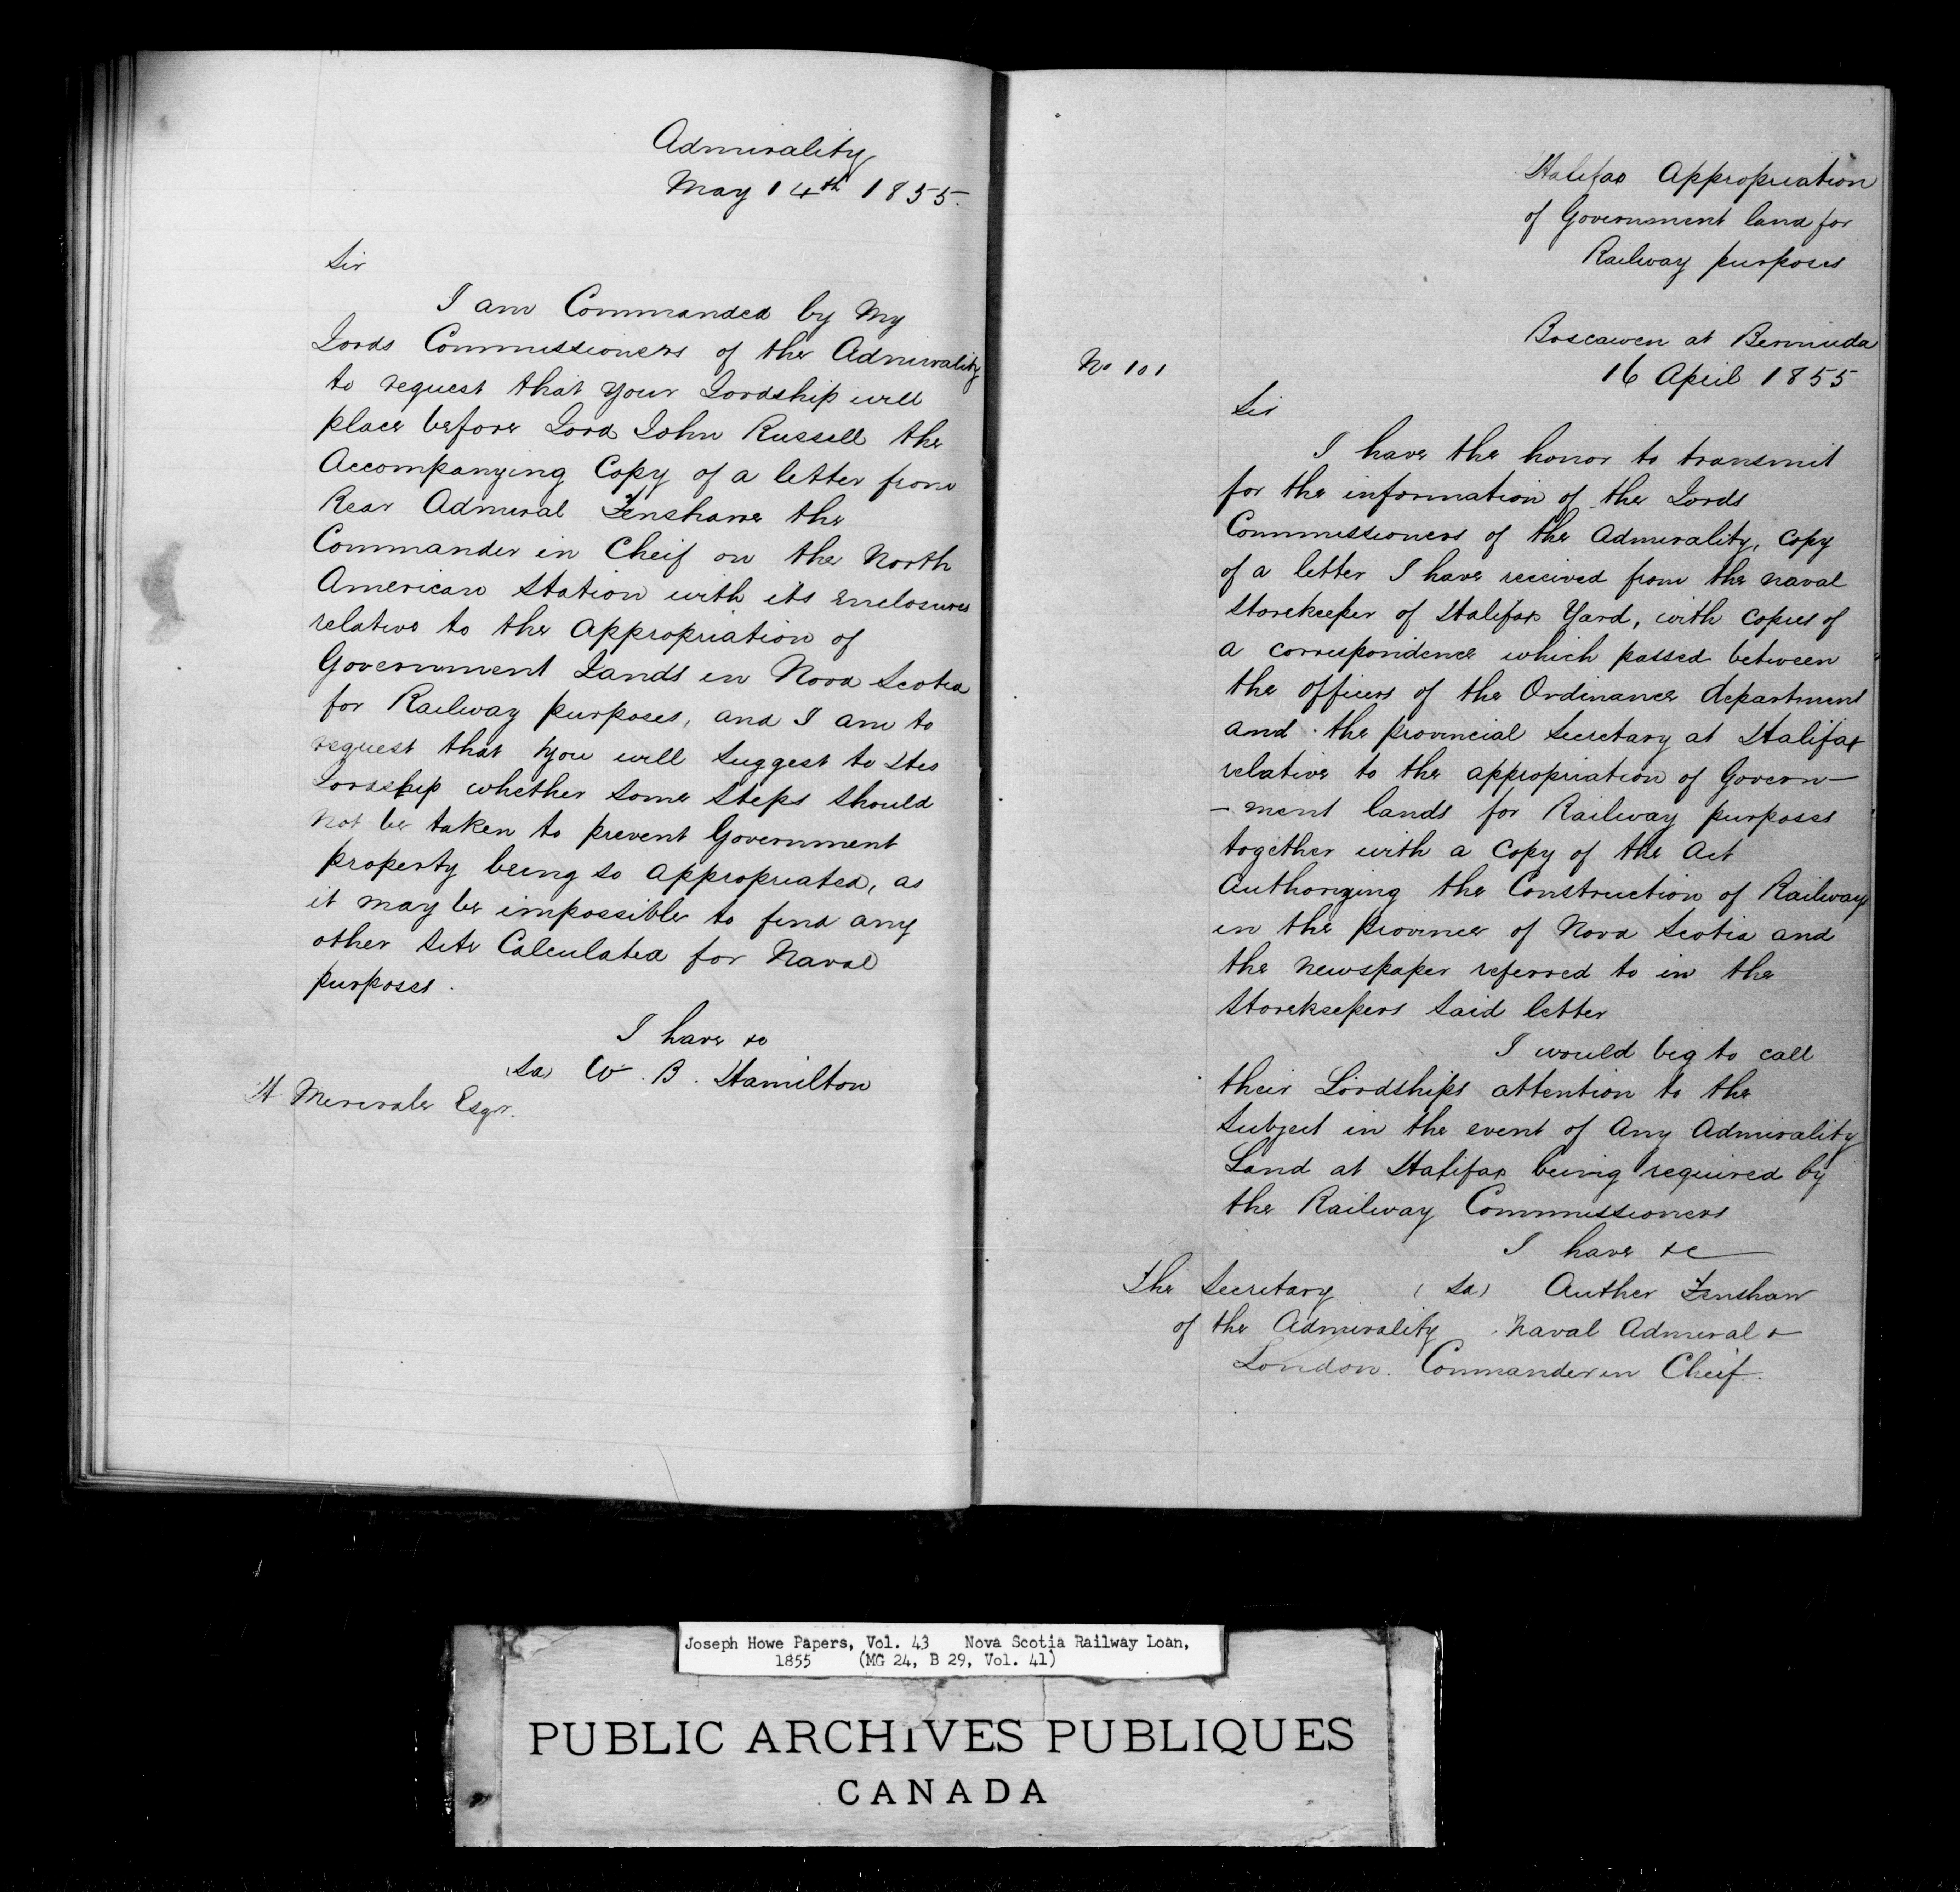 Admirality
May 14th 1855.
Sir
I am Commanded by My
Lords Commissioners of the Admirality
to request that your Lordship will
place before Lord John Russell the
Accompanying Copy of a letter from
Rear Admiral Fenshawe the
Commander in Cheif on the North
American Station with its enclosures
relative to the appropriation of
Government Lands in Nova Scotia
for Railway purposes, and I am to
request that you will suggest to His
Lordship whether some steps should
not be taken to prevent Government
property being so appropriated, as
it may be impossible to find any
other site Calculated for Naval
purposes.
I have &c
(Sd) W. B. Hamilton
H Merivale Esqr.
Halifax Appropriation
of Government land for
Railway purposes
Boscawen at Bermuda
No 101
16 April 1855
Sir
I have the honor to transmit
for the information of the Lords
Commissioners of the Admirality, copy
of a letter I have received from the naval
Storekeeper of Halifax Yard, with copies of
a correspondence which passed between
the officers of the Ordinance department
and the provincial Secretary at Halifax
relative to the appropriation of Govern-
-ment lands for Railway purposes
together with a copy of the Act
Authorizing the Construction of Railways
in the province of Nova Scotia and
the newspaper referred to in the
Storekeepers said letter
I would beg to call
their Lordships attention to the
Subject in the event of any Admirality
Land at Halifax being required by
the Railway Commissioners
I have &c
The Secretary (Sd) Auther Fenshaw
of the Admirality Naval Admiral &
London. Commander in Cheif.
Joseph Howe Papers, Vol. 43 Nova Scotia Railway Loan,
1855 (MG 24, B 29, Vol. 41)
PUBLIC ARCHIVES PUBLIQUES
CANADA